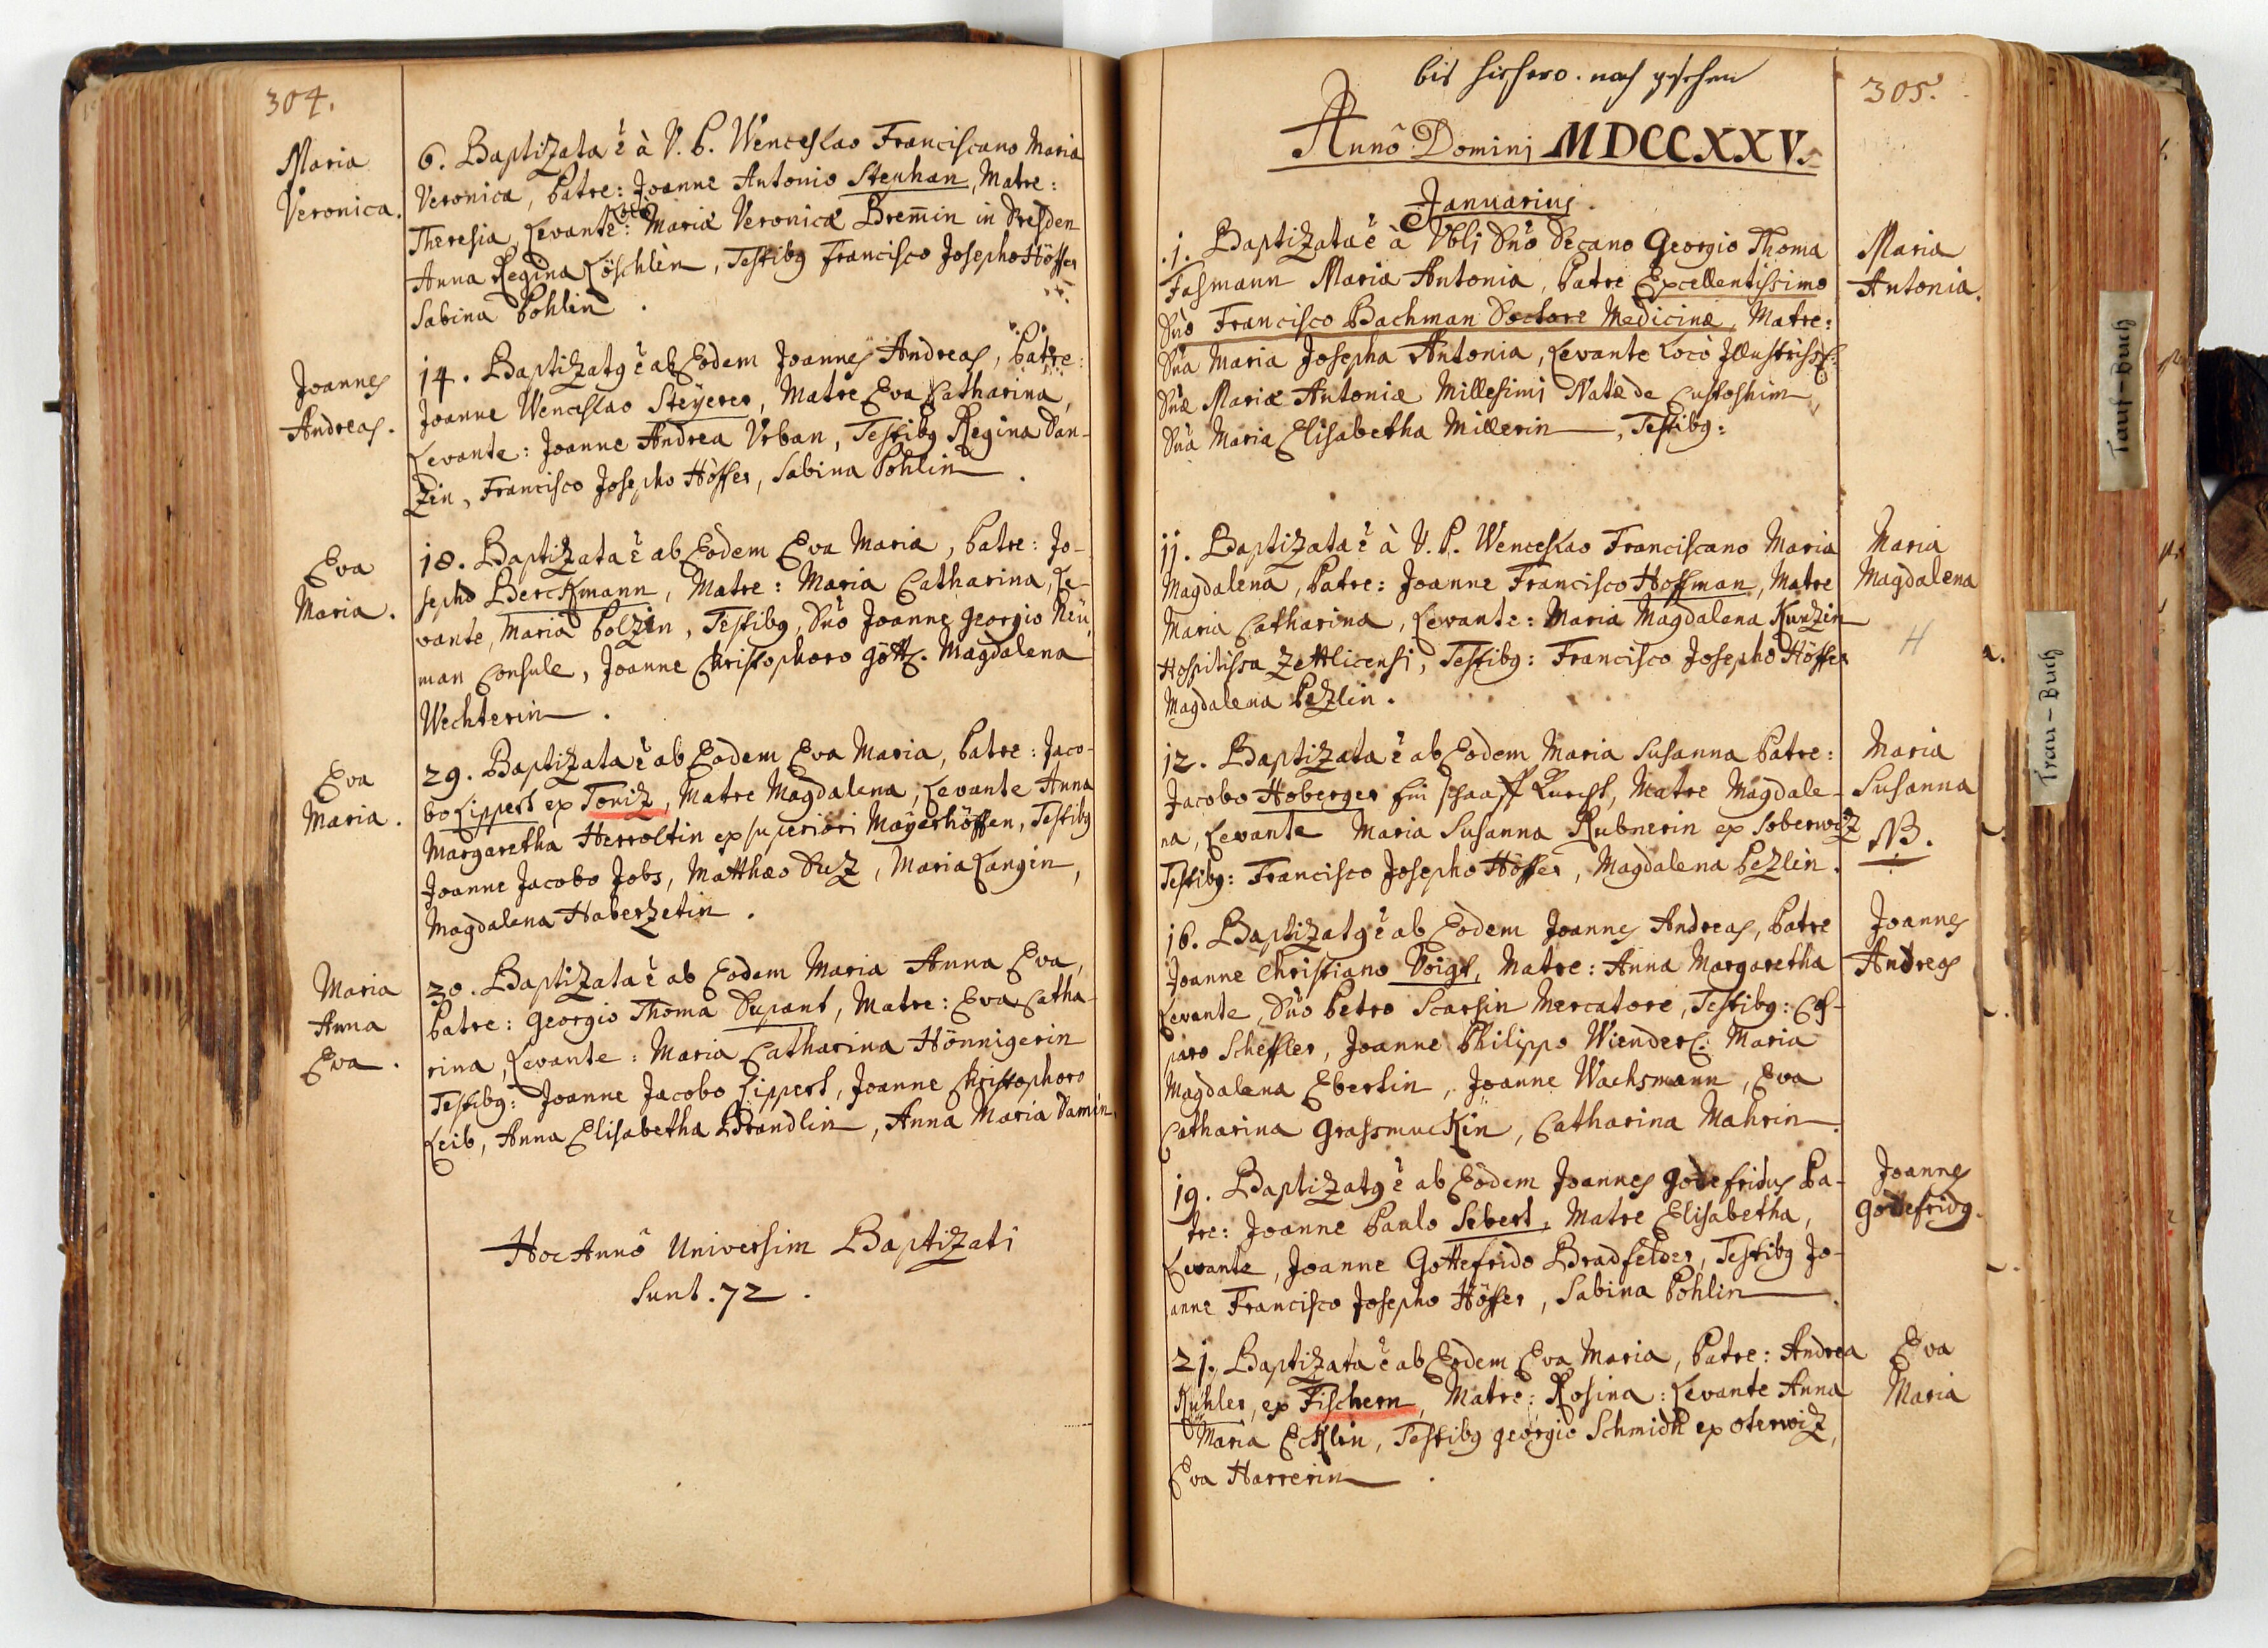 304.
Maria
Veronica.
6. Baptizata ẽ à V. P. Wenceslao Franciscano Maria
Veronica, Patre: Joanne Antonio Steuhan, Matre:
Theresia, Levante: Loco Mariæ Veronicæ Brem̄in in Dresden
Anna Regina Löschlin, Testibg Francisco Josepho Höffer
Sabina Pohlin.
Joannes
Andreas.
14. Baptizatg ẽ ab Eodem Joannes Andreas, Patre:
Joanne Wenceslao Steyerer, Matre Eva Catharina,
Levante: Joanne Andrea Vrban, Testibg Regina Dan-
zin, Francisco Josepho Höffer, Sabina Pohlin.
Eva
Maria.
18. Baptizata ẽ ab Eodem Eva Maria, Patre: Jo-
sepho Berckmann, Matre: Maria Catharina, Le-
vante, Maria Polzin, Testibg, Dnō Joanne Georgio Neü
man Consule, Joanne Christophoro Götz. Magdalena
Wechterin.
Eva
Maria.
29. Baptizata ẽ ab Eodem Eva Maria, Patre: Jaco-
bo Lippert ex Toniz, Matre Magdalena, Levante Anna
Margaretha Herroltin ex superiori Mayerhöffen, Testibg
Joanne Jacobo Jobs, Matthæo Duz, Maria Langin,
Magdalena Haberzetin.
Maria
Anna
Eva.
30. Baptizata ẽ ab Eodem Maria Anna Eva,
Patre: Georgio Thoma Dupant, Matre: Eva Catha-
rina, Levante: Maria Catharina Hönnigerin
Testibg: Joanne Jacobo Lippert, Joanne Christophoro
Leib, Anna Elisabetha Brandlin, Anna Maria Damin.
Hoc Annō Universim Baptizati
Sunt. 72.
bis hiehero. nach gesehen
305.
Annō Domini MDCCXXV.
Januarius.
1. Baptizata ẽ à Vbli Dnō Decano Georgio Thoma
Fasmann Maria Antonia, Patre Excellentissimo
Dnō Francisco Bachman Doctore Medicinæ, Matre:
Dnā Maria Josepha Antonia, Levante Locò Illustriss:
Dnæ Mariæ Antoniæ Millesimi Natæ de
Dnā Maria Elisabetha Millerin, Testibg:
Maria
Antonia.
11. Baptizata ẽ à V. P. Wenceslao Franciscano Maria
Magdalena, Patre: Joanne Francisco Hoffman, Matre
Maria Catharina, Levante: Maria Magdalena Kunzin
Hospitissa Zettlicensi, Testibg: Francisco Josepho Höffer
Magdalena Pezlin.
Maria
Magdalena
H
12. Baptizata ẽ ab Eodem Maria Susanna Patre:
Jacobo Hoberger Matre Magdale-
na, Levante Maria Susanna Rubnerin ex Soberwiz
Testibg: Francisco Josepho Höffer, Magdalena Pezlin.
Maria
Susanna
NB.
16. Baptizatg ẽ ab Eodem Joannes Andreas, Patre
Joanne Christiano Voigt, Matre: Anna Margaretha
Levante, Dnō Petro Scarsin Mercatore, Testibg: Cas-
paro Scheffler, Joanne Philippo Wiender. Maria
Magdalena Ebertin, Joanne Wachsmann, Eva
Catharina Grassmuckin, Catharina Mahrin.
Joannes
Andreas
19. Baptizatg ẽ ab Eodem Joannes Godefridus Pa-
tre: Joanne Paulo Sebert, Matre Elisabetha,
Levante, Joanne Gottefrido Bradfelder, Testibg Jo-
anne Francisco Josepho Höffer, Sabina Pohlin.
Joannes
Godefridg.
21. Baptizata ẽ ab Eodem Eva Maria, Patre: Andrea
Kühler, ex Fischern, Matre: Rosina: Levante Anna
Maria Ecklin, Testibg Georgio Schmidt ex Oterwiz,
Eva Harrerin.
Eva
Maria
Tauf-Buch
Trau-Buch